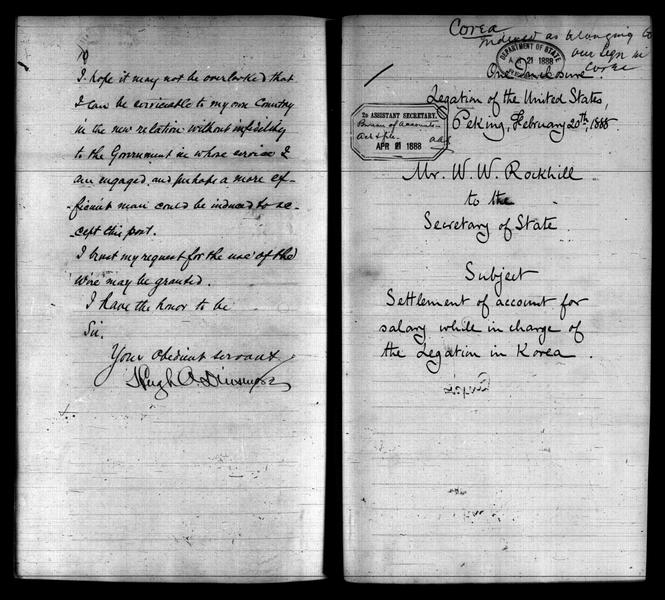 I hope it may not be overlooked that
I can be serviceable to my own Country
in the new relation without infidelity
to the Government in whose service I
am engaged, and perhaps a more ef-
-ficient man could be induced to ac-
-cept this post.
I trust my request for the use of the
Wire may be granted.
I have the honor to be
Sir.
Your obedient servant
Hugh A. Dinsmore
Corea
indexed as belonging to
our Legn in
Corea
DEPARTMENT OF STATE
21 1888
One Enclosure.
Legation of the United States,
Peking, February 20th, 1888
2D ASSISTANT SECRETARY.
Bureau of Accounts
APR 21 1888
Mr. W. W. Rockhill
to the
Secretary of State
Subject
Settlement of account for
salary while in charge of
the Legation in Korea.